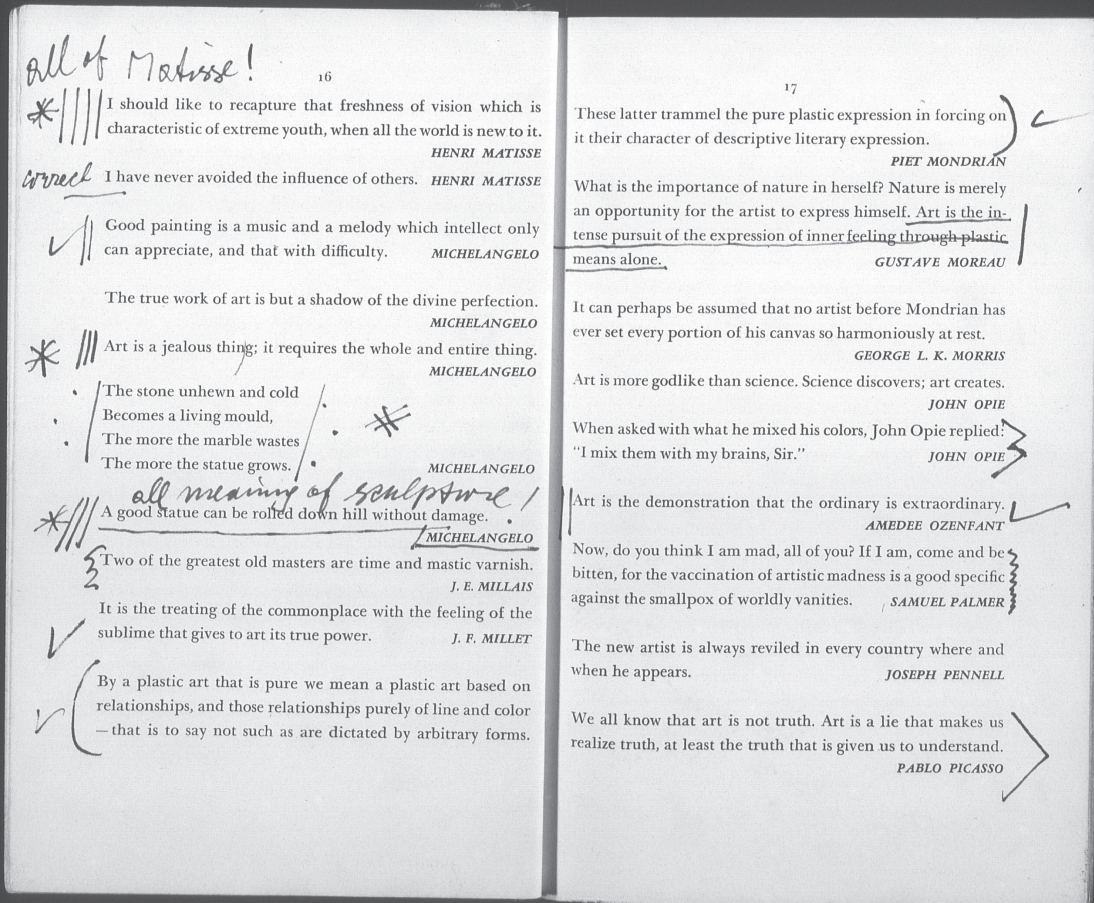 all of Matisse!
16
I should like to recapture that freshness of vision which is
characteristic of extreme youth, when all the world is new to it.
HENRI MATISSE
correct
I have never avoided the influence of others. HENRI MATISSE
Good painting is a music and a melody which intellect only
can appreciate, and that with difficulty. MICHELANGELO
The true work of art is but a shadow of the divine perfection.
MICHELANGELO
Art is a jealous thing; it requires the whole and entire thing.
MICHELANGELO
The stone unhewn and cold
Becomes a living mould,
The more the marble wastes
The more the statue grows. MICHELANGELO
all meaning of sculpture!
A good statue can be rolled down hill without damage.
MICHELANGELO
Two of the greatest old masters are time and mastic varnish.
J. E. MILLAIS
It is the treating of the commonplace with the feeling of the
sublime that gives to art its true power. J. F. MILLET
By a plastic art that is pure we mean a plastic art based on
relationships, and those relationships purely of line and color
—that is to say not such as are dictated by arbitrary forms.
17
These latter trammel the pure plastic expression in forcing on
it their character of descriptive literary expression.
PIET MONDRIAN
What is the importance of nature in herself? Nature is merely
an opportunity for the artist to express himself. Art is the in-
tense pursuit of the expression of inner feeling through plastic
means alone. GUSTAVE MOREAU
It can perhaps be assumed that no artist before Mondrian has
ever set every portion of his canvas so harmoniously at rest.
GEORGE L. K. MORRIS
Art is more godlike than science. Science discovers; art creates.
JOHN OPIE
When asked with what he mixed his colors, John Opie replied:
"I mix them with my brains, Sir." JOHN OPIE
Art is the demonstration that the ordinary is extraordinary.
AMEDEE OZENFANT
Now, do you think I am mad, all of you? If I am, come and be
bitten, for the vaccination of artistic madness is a good specific
against the smallpox of worldly vanities. SAMUEL PALMER
The new artist is always reviled in every country where and
when he appears. JOSEPH PENNELL
We all know that art is not truth. Art is a lie that makes us
realize truth, at least the truth that is given us to understand.
PABLO PICASSO